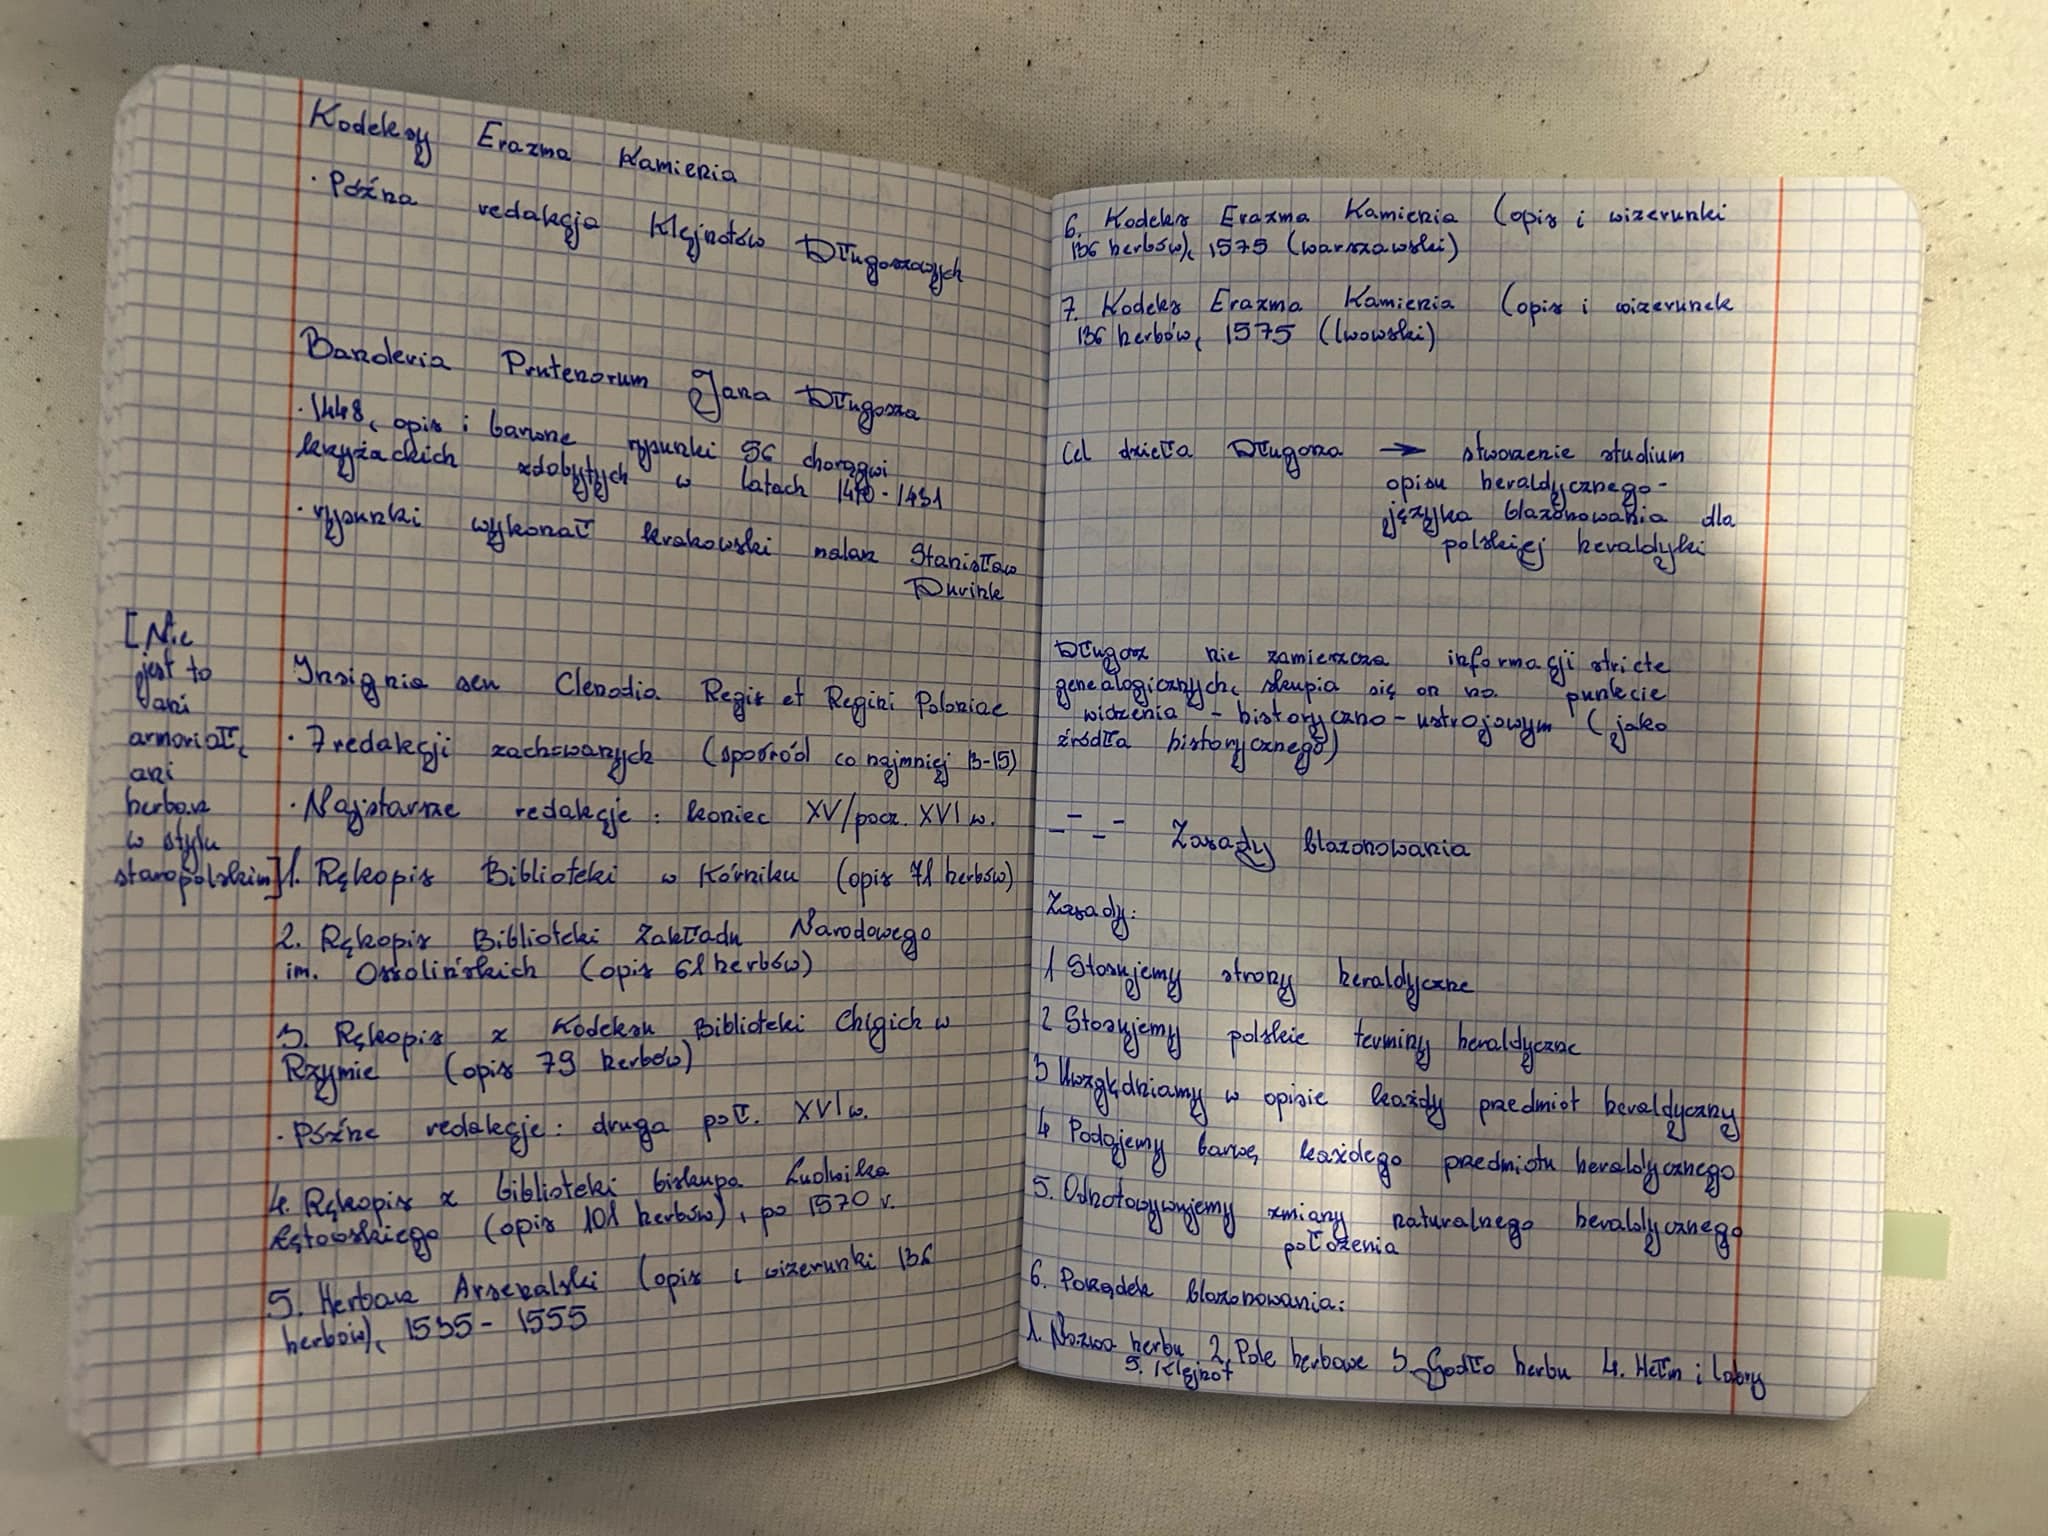 Kodeksy Erazma Kamienia
· Późna redakcja Klejnotów Długoszowych
Banderia Prutenorum Jana Długosza
· 1448, opis i barwne rysunki 56 chorągwi
krzyżackich zdobytych w latach 1410-1431
· rysunki wykonał krakowski malarz Stanisław
Durink
[Nie
jest to
ani
armoriał,
ani
herbarz
w stylu
staropolskim]
Insignia seu Clenodia Regis et Regini Poloniae
· 7 redakcji zachowanych (spośród co najmniej 13-15)
· Najstarsze redakcje: koniec XV/pocz. XVI w.
1. Rękopis Biblioteki w Kórniku (opis 71 herbów)
2. Rękopis Biblioteki Zakładu Narodowego
im. Ossolińskich (opis 61 herbów)
3. Rękopis z Kodeksu Biblioteki Chigich w
Rzymie (opis 79 herbów)
· Późne redakcje: druga poł. XVI w.
4. Rękopis z biblioteki biskupa Ludwika
Łętowskiego (opis 101 herbów), po 1570 r.
5. Herbarz Arsenalski (opis i wizerunki 136
herbów), 1535-1555
6. Kodeks Erazma Kamienia (opis i wizerunki
136 herbów), 1575 (warszawski)
7. Kodeks Erazma Kamienia (opis i wizerunek
136 herbów, 1575 (lwowski)
Cel dzieła Długosza → stworzenie studium
opisu heraldycznego-
języka blazonowania dla
polskiej heraldyki
Długosz nie zamieszcza informacji stricte
genealogicznych, skupia się on na punkcie
widzenia - historyczno-ustrojowym (jako
źródła historycznego)
Zasady blazonowania
Zasady:
1 Stosujemy strony heraldyczne
2 Stosujemy polskie terminy heraldyczne
3 Uwzględniamy w opisie każdy przedmiot heraldyczny
4 Podajemy barwę każdego przedmiotu heraldycznego
5. Odnotowywujemy zmiany naturalnego heraldycznego
położenia
6. Porządek blazonowania:
1. Nazwa herbu 2. Pole herbowe 3. Godło herbu 4. Hełm i labry
5. Klejnot